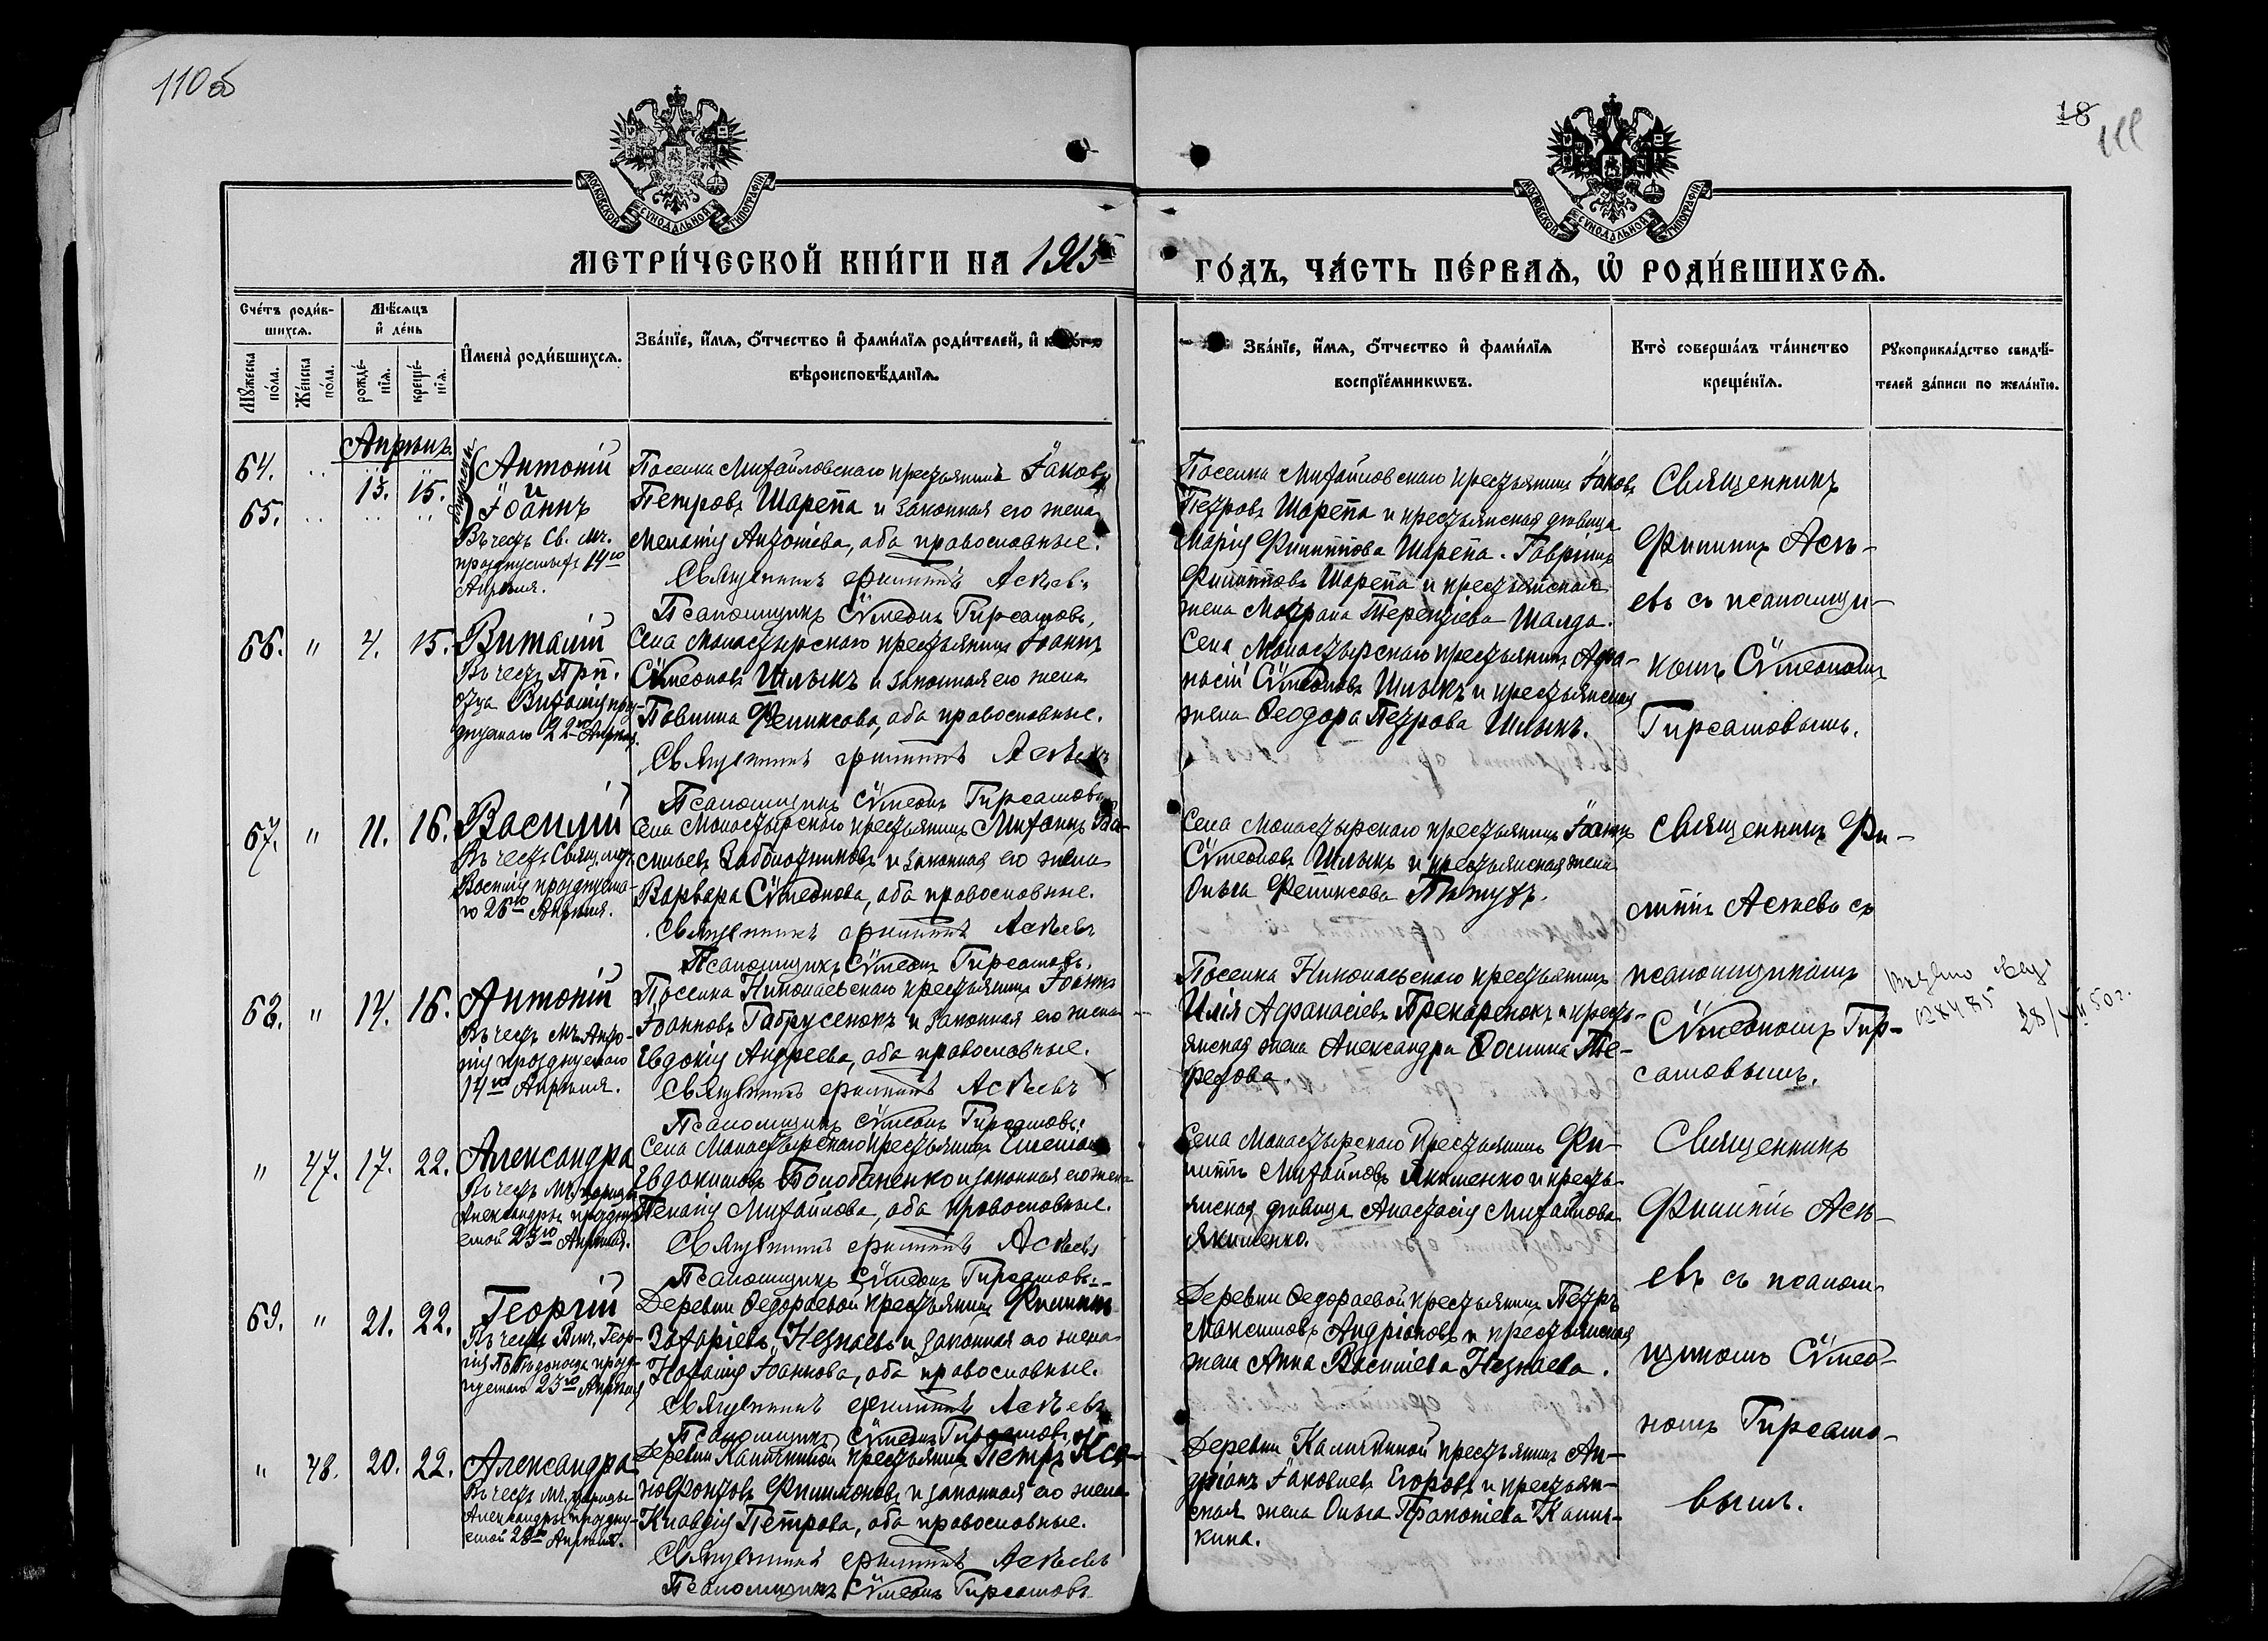 110 об
18
111
МОСКОВСКОЙ СѴНОДАЛЬНОЙ ТИПОГРАФІИ
МОСКОВСКОЙ СѴНОДАЛЬНОЙ ТИПОГРАФІИ
МЕТРИ́ЧЕСКОЙ КНИ́ГИ НА 1915
ГО́ДЪ, ЧА́СТЬ ПЕ́РВАѦ, Ѡ҆ РОДИ́ВШИХСѦ.
Сче́тъ роди́в-
шихсѧ.
Мꙋжеска по́ла.
Же́нска по́ла.
Мѣ́сѧцъ
и҆ де́нь
рожде́-
нїѧ.
креще́-
нїѧ.
И҆мена̀ роди́вшихсѧ.
Зва́нїе, и҆́мѧ, ѻ҆́тчество и҆ фами́лїѧ роди́телей, и҆
вѣроисповѣ́данїѧ.
Зва́нїе, и҆́мѧ, ѻ҆́тчество и҆ фами́лїѧ
воспрїе́мникѡвъ.
Кто̀ соверша́лъ та́инство
креще́нїѧ.
Рꙋкоприкла́дство свидѣ́-
телей за́писи по жела́нїю.
Апрѣль
64.
65.
13. 15.
близнецы
Антоній
и
Іоаннъ
Въ честь Св. мч.
празднуемыхъ 14го
Апрѣля.
Поселка Михайловскаго крестьянинъ Іаковъ
Петровъ Шарепа и законная его жена
Мелатія Антоніева, оба православные.
Священникъ Филиппъ Асѣевъ
Псаломщикъ Сѵмеонъ Гирсамовъ.
Поселка Михайловскаго крестьянинъ Іаковъ
Петровъ Шарепа и крестьянская дѣвица
Марія Филиппова Шарепа. Гавріилъ
Филипповъ Шарепа и крестьянская
жена Матрона Терентіева Шалда.
Священникъ
Филиппъ Асѣ-
евъ съ псаломщи-
комъ Сѵмеономъ
Гирсамовымъ.
66. " 4. 15.
Виталій
Въ честь Прп.
отца Виталія праз-
днуемаго 22го Апрѣля.
Села Монастырскаго крестьянинъ Іоаннъ
Сѵмеоновъ Шлыкъ и законная его жена
Павлина Феликсова, оба православные.
Священникъ Филиппъ Асѣевъ
Псаломщикъ Сѵмеонъ Гирсамовъ
Села Монастырскаго крестьянинъ Афа-
насій Сѵмеоновъ Шлыкъ и крестьянская
жена Ѳеодора Петрова Шлыкъ.
67. " 11. 16.
Василій
Въ честь Свящ. муч.
Василія празднуема-
го 26го Апрѣля.
Села Монастырскаго крестьянинъ Михаилъ Ва-
сильевъ Заболотниковъ и законная его жена
Варвара Сѵмеонова, оба православные.
Священникъ Филиппъ Асѣевъ
Псаломщикъ Сѵмеонъ Гирсамовъ.
Села Монастырскаго крестьянинъ Іоаннъ
Сѵмеоновъ Шлыкъ и крестьянская жена
Ольга Феликсова
Священникъ Фи-
липпъ Асѣевъ съ
псаломщикомъ
Сѵмеономъ Гир-
самовымъ.
68. " 14. 16.
Антоній
Въ честь мч. Анто-
нія празднуемаго
14го Апрѣля.
Поселка Николаевскаго крестьянинъ Іоаннъ
Іоанновъ Габрусенокъ и законная его жена
Евдокія Андреева, оба православные.
Священникъ Филиппъ Асѣевъ
Псаломщикъ Сѵмеонъ Гирсамовъ.
Поселка Николаевскаго крестьянинъ
Илія Афанасіевъ Прекаренокъ и кресть-
янская жена Александра Ѳомина
28/XII 50 г.
" 47. 17. 22.
Александра
Въ честь мч. царицы
Александры праздну-
емой 23го Апрѣля.
Села Монастырскаго крестьянинъ
ЕвдокимовъБолобаненко и законная его жена
Пелагія Михайлова, оба православные.
Священникъ Филиппъ Асѣевъ
Псаломщикъ Сѵмеонъ Гирсамовъ.
Села Монастырскаго Крестьянинъ Фи-
липпъ Михайловъ Якименко и кресть-
янская дѣвица Анастасія Михайлова
Якименко.
Священникъ
Филиппъ Асѣ-
евъ съ псалом-
щикомъ Сѵмео-
номъ Гирсамо-
вымъ.
69. " 21. 22.
Георгій
Въ честь Влкмч. Геор-
гія Побѣдоносца празд-
нуемаго 23го Апрѣля
Деревни Ѳедораевой крестьянинъ Филиппъ
Захаріевъ Незнаевъ и законная его жена
Наталія Іоаннова, оба православные.
Священникъ Филиппъ Асѣевъ
Псаломщикъ Сѵмеонъ Гирсамовъ
Деревни Ѳедораевой крестьянинъ Петръ
Максимовъ Андріановъ и крестьянская
жена Анна Васильева Незнаева.
" 48. 20. 22.
Александра
Въ честь мч. царицы
Александры праздну-
емой 23го Апрѣля.
Деревни Калинкиной крестьянинъ Петръ Ксе-
нофонтовъ Филимоновъ и законная его жена
Клавдія Петрова, оба православные.
Священникъ Филиппъ Асѣевъ
Псаломщикъ Сѵмеонъ Гирсамовъ
Деревни Калинкиной крестьянинъ Ан-
дріанъ Іаковлевъ Егоровъ и крестьян-
ская жена Ольга Прокопіева Калин-
кина.